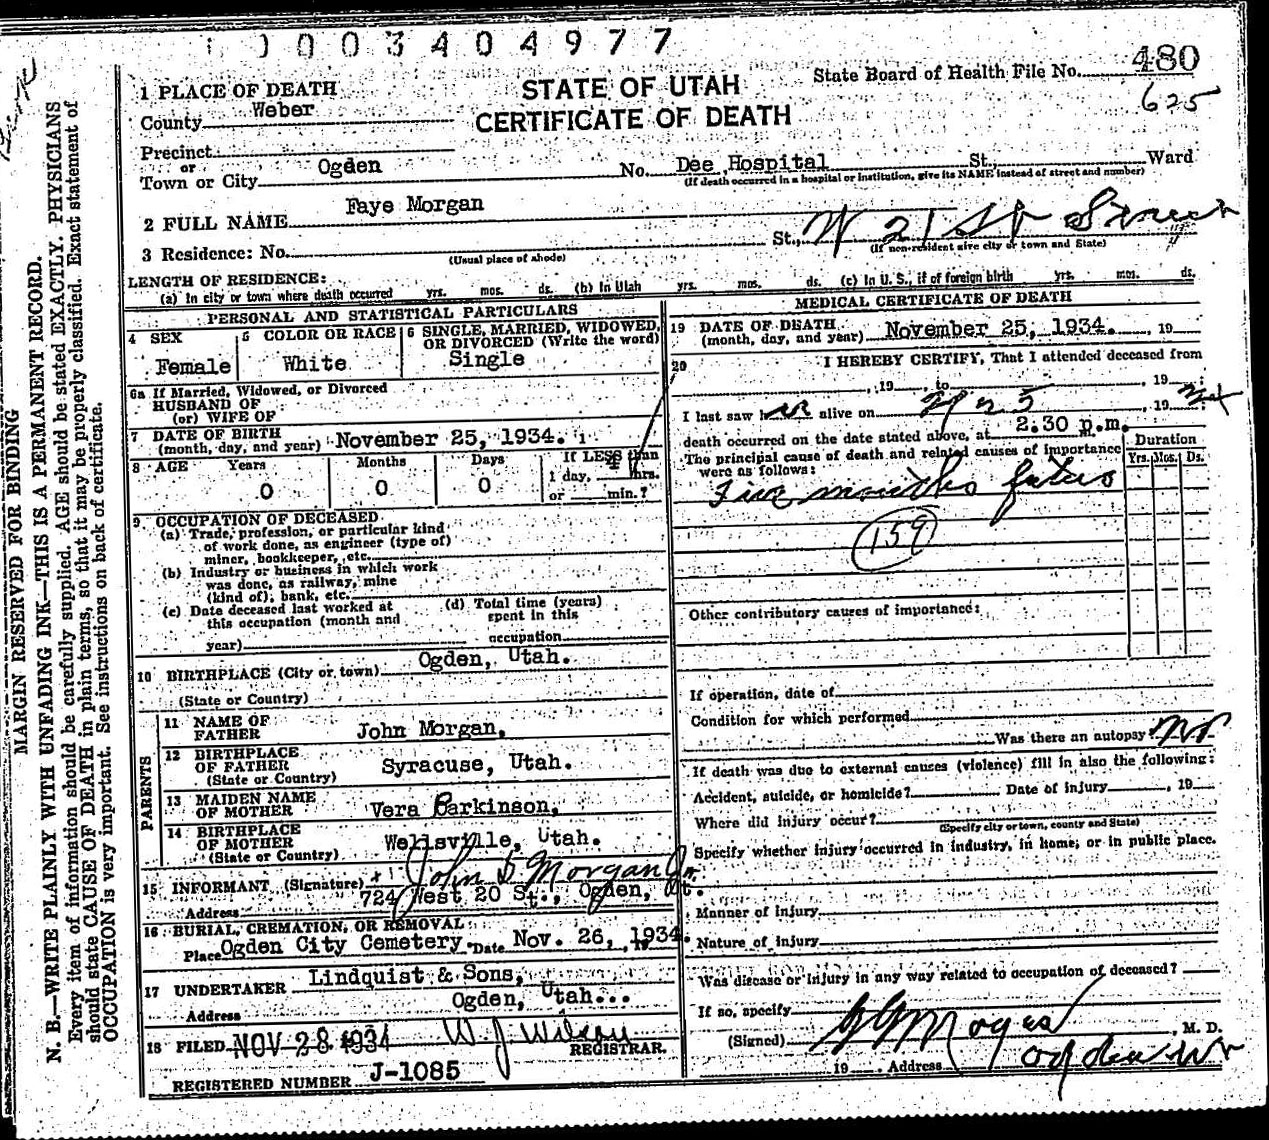 1 0 0 0 3 4 0 4 9 7 7
STATE OF UTAH
CERTIFICATE OF DEATH
State Board of Health File No. 480
625
1 PLACE OF DEATH
County Weber
Precinct
or
Town or City Ogden No. Dee Hospital St., Ward
(If death occurred in a hospital or institution, give its NAME instead of street and number)
2 FULL NAME Faye Morgan
3 Residence: No. St., W 21 St Street
(Usual place of abode) (If non-resident give city or town and State)
LENGTH OF RESIDENCE:
(a) In city or town where death occurred yrs. mos. ds. (b) In Utah yrs. mos. ds. (c) In U. S., if of foreign birth yrs. mos. ds.
PERSONAL AND STATISTICAL PARTICULARS
4 SEX Female
5 COLOR OR RACE White
6 SINGLE, MARRIED, WIDOWED, OR DIVORCED (Write the word) Single
6a If Married, Widowed, or Divorced
HUSBAND OF
(or) WIFE OF
7 DATE OF BIRTH
(month, day, and year) November 25, 1934.
8 AGE Years Months Days If LESS than
0 0 0 1 day, 4 hrs.
or min.?
9. OCCUPATION OF DECEASED
(a) Trade, profession, or particular kind
of work done, as engineer (type of)
miner, bookkeeper, etc.
(b) Industry or business in which work
was done, as railway, mine
(kind of), bank, etc.
(c) Date deceased last worked at
this occupation (month and
year)
(d) Total time (years)
spent in this
occupation
10 BIRTHPLACE (City or town) Ogden, Utah.
(State or Country)
PARENTS
11 NAME OF
FATHER John Morgan,
12 BIRTHPLACE
OF FATHER Syracuse, Utah.
(State or Country)
13 MAIDEN NAME
OF MOTHER Vera Parkinson,
14 BIRTHPLACE
OF MOTHER Wellsville, Utah.
(State or Country)
15 INFORMANT (Signature) John D Morgan Jr.
Address 724 West 20 St., Ogden, Ut.
16 BURIAL, CREMATION, OR REMOVAL
Place Ogden City Cemetery Date Nov. 26, 1934.
17 UNDERTAKER Lindquist & Sons,
Address Ogden, Utah...
18 FILED NOV 28 1934 W. J. Wilson
REGISTRAR.
REGISTERED NUMBER J-1085
MEDICAL CERTIFICATE OF DEATH
19 DATE OF DEATH
(month, day, and year) November 25, 1934. 19
20 I HEREBY CERTIFY, That I attended deceased from
, 19 , to , 19 ;
I last saw her alive on , 19
death occurred on the date stated above, at 2.30 p.m.
The principal cause of death and related causes of importance
were as follows:
Duration
Yrs. Mos. Ds.
Five months fetus
159
Other contributory causes of importance:
If operation, date of
Condition for which performed
Was there an autopsy No
If death was due to external causes (violence) fill in also the following:
Accident, suicide, or homicide? Date of injury , 19
Where did injury occur?
(Specify city or town, county and State)
Specify whether injury occurred in industry, in home, or in public place.
Manner of injury
Nature of injury
Was disease or injury in any way related to occupation of deceased?
If so, specify
(Signed) , M. D.
19 Address Ogden
MARGIN RESERVED FOR BINDING
N. B.—WRITE PLAINLY WITH UNFADING INK—THIS IS A PERMANENT RECORD.
Every item of information should be carefully supplied. AGE should be stated EXACTLY. PHYSICIANS
should state CAUSE OF DEATH in plain terms, so that it may be properly classified. Exact statement of
OCCUPATION is very important. See instructions on back of certificate.